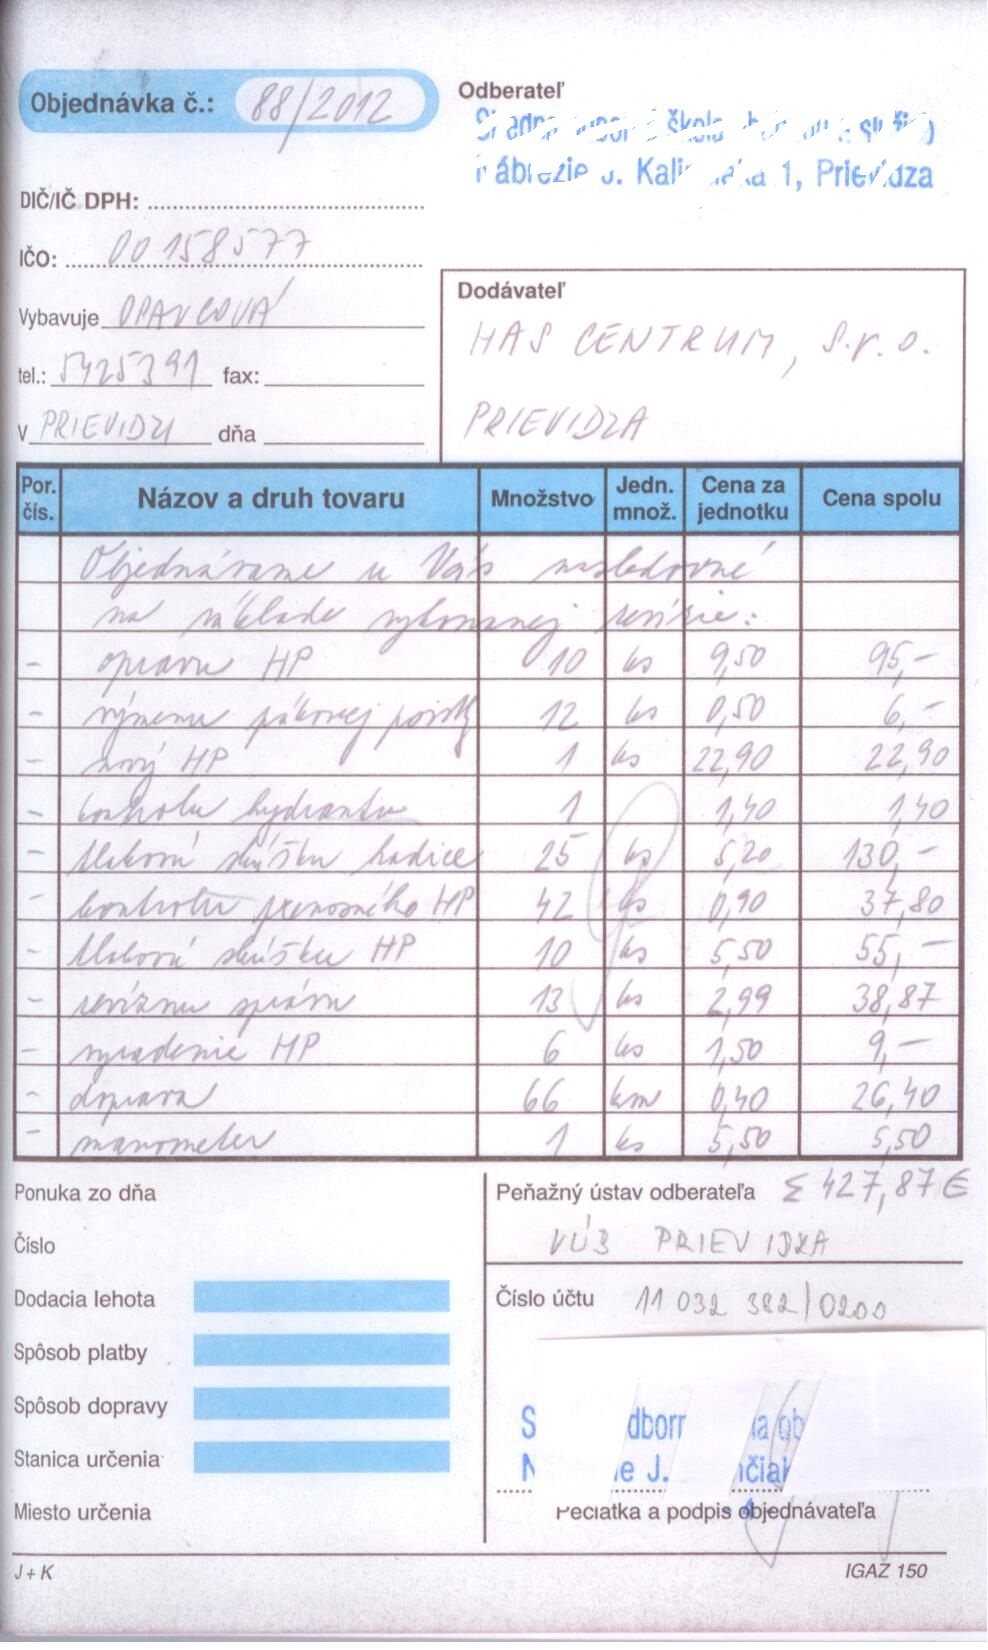 Objednávka č.: 88/2012
Odberateľ
škola
Nábrezie J. Kalinčiaka 1, Prievidza
DIČ/IČ DPH:
IČO: 00158577
Vybavuje OPAVCOVÁ
tel.: 5425391 fax:
V PRIEVIDZI dňa
Dodávateľ
HAS CENTRUM, s.r.o.
PRIEVIDZA
Por. čís. Názov a druh tovaru Množstvo Jedn. množ. Cena za jednotku Cena spolu
Objednávame u Vás nasledovné
na základe vykonanej revízie:
- opravu HP 10 ks 9,50 95,-
- výmenu pákovej poistky 12 ks 0,50 6,-
- nový HP 1 ks 22,90 22,90
- kontrolu hydrantu 1 1,40 1,40
- tlakovú skúšku hadice 25 ks 5,20 130,-
- kontrolu prenosného HP 42 ks 0,90 37,80
- tlakovú skúšku HP 10 ks 5,50 55,-
- revíznu správu 13 ks 2,99 38,87
- vyradenie HP 6 ks 1,50 9,-
- doprava 66 km 0,40 26,40
- manometer 1 ks 5,50 5,50
Ponuka zo dňa
Číslo
Dodacia lehota
Spôsob platby
Spôsob dopravy
Stanica určenia
Miesto určenia
Peňažný ústav odberateľa Σ 427,87 €
VÚB PRIEVIDZA
Číslo účtu 11 032 382/0200
Pečiatka a podpis objednávateľa
J + K
IGAZ 150